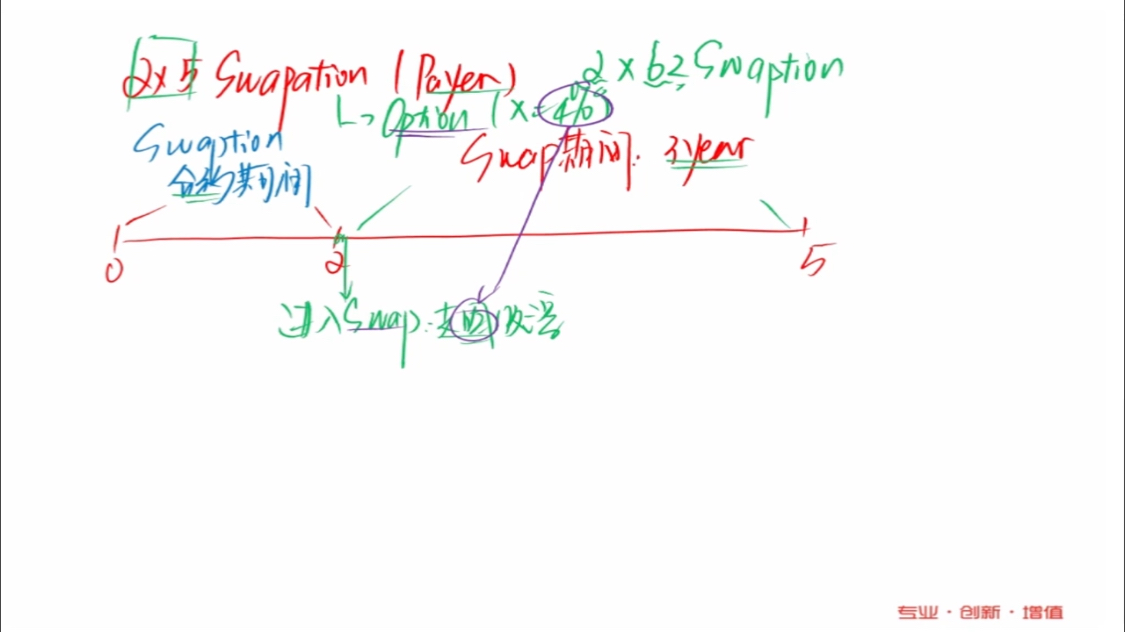 2x5 Swapation (Payer)
2 x 62 Swaption
Option (X= 4%)
Swaption
合约期间
Swap期间: 3year
0
2
5
进入Swap: 支固收浮
专业·创新·增值